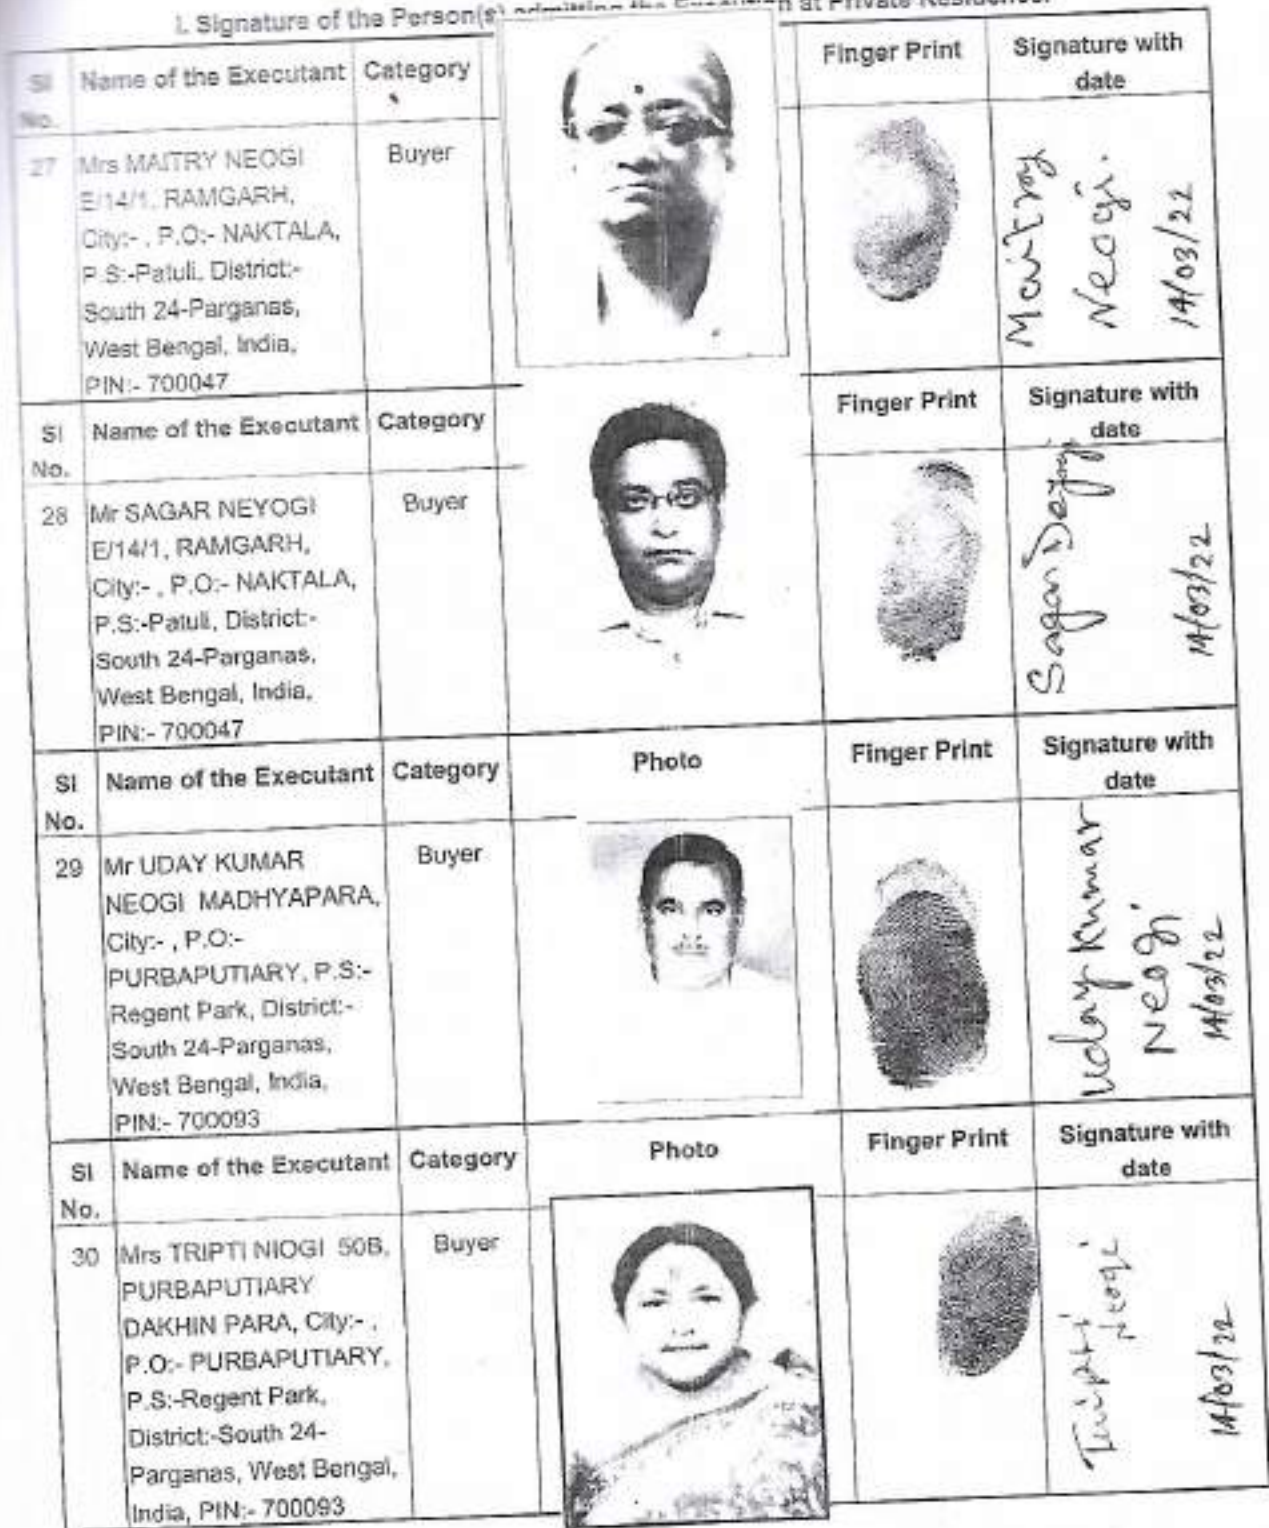 I. Signature of the Person(s) admitting the Execution at Private Residence.
Sl No. Name of the Executant Category Finger Print Signature with date
27 Mrs MAITRY NEOGI Buyer
E/14/1, RAMGARH,
City:- , P.O:- NAKTALA,
P.S:-Patuli, District:-
South 24-Parganas,
West Bengal, India,
PIN:- 700047
Maitry
Neogi.
14/03/22
Sl No. Name of the Executant Category Finger Print Signature with date
28 Mr SAGAR NEYOGI Buyer
E/14/1, RAMGARH,
City:- , P.O:- NAKTALA,
P.S:-Patuli, District:-
South 24-Parganas,
West Bengal, India,
PIN:- 700047
Sagar
14/03/22
Sl No. Name of the Executant Category Photo Finger Print Signature with date
29 Mr UDAY KUMAR Buyer
NEOGI MADHYAPARA,
City:- , P.O:-
PURBAPUTIARY, P.S:-
Regent Park, District:-
South 24-Parganas,
West Bengal, India,
PIN:- 700093
Uday Kumar
Neogi
14/03/22
Sl No. Name of the Executant Category Photo Finger Print Signature with date
30 Mrs TRIPTI NIOGI 50B, Buyer
PURBAPUTIARY
DAKHIN PARA, City:- ,
P.O:- PURBAPUTIARY,
P.S:-Regent Park,
District:-South 24-
Parganas, West Bengal,
India, PIN:- 700093
Tripti
Neogi
14/03/22